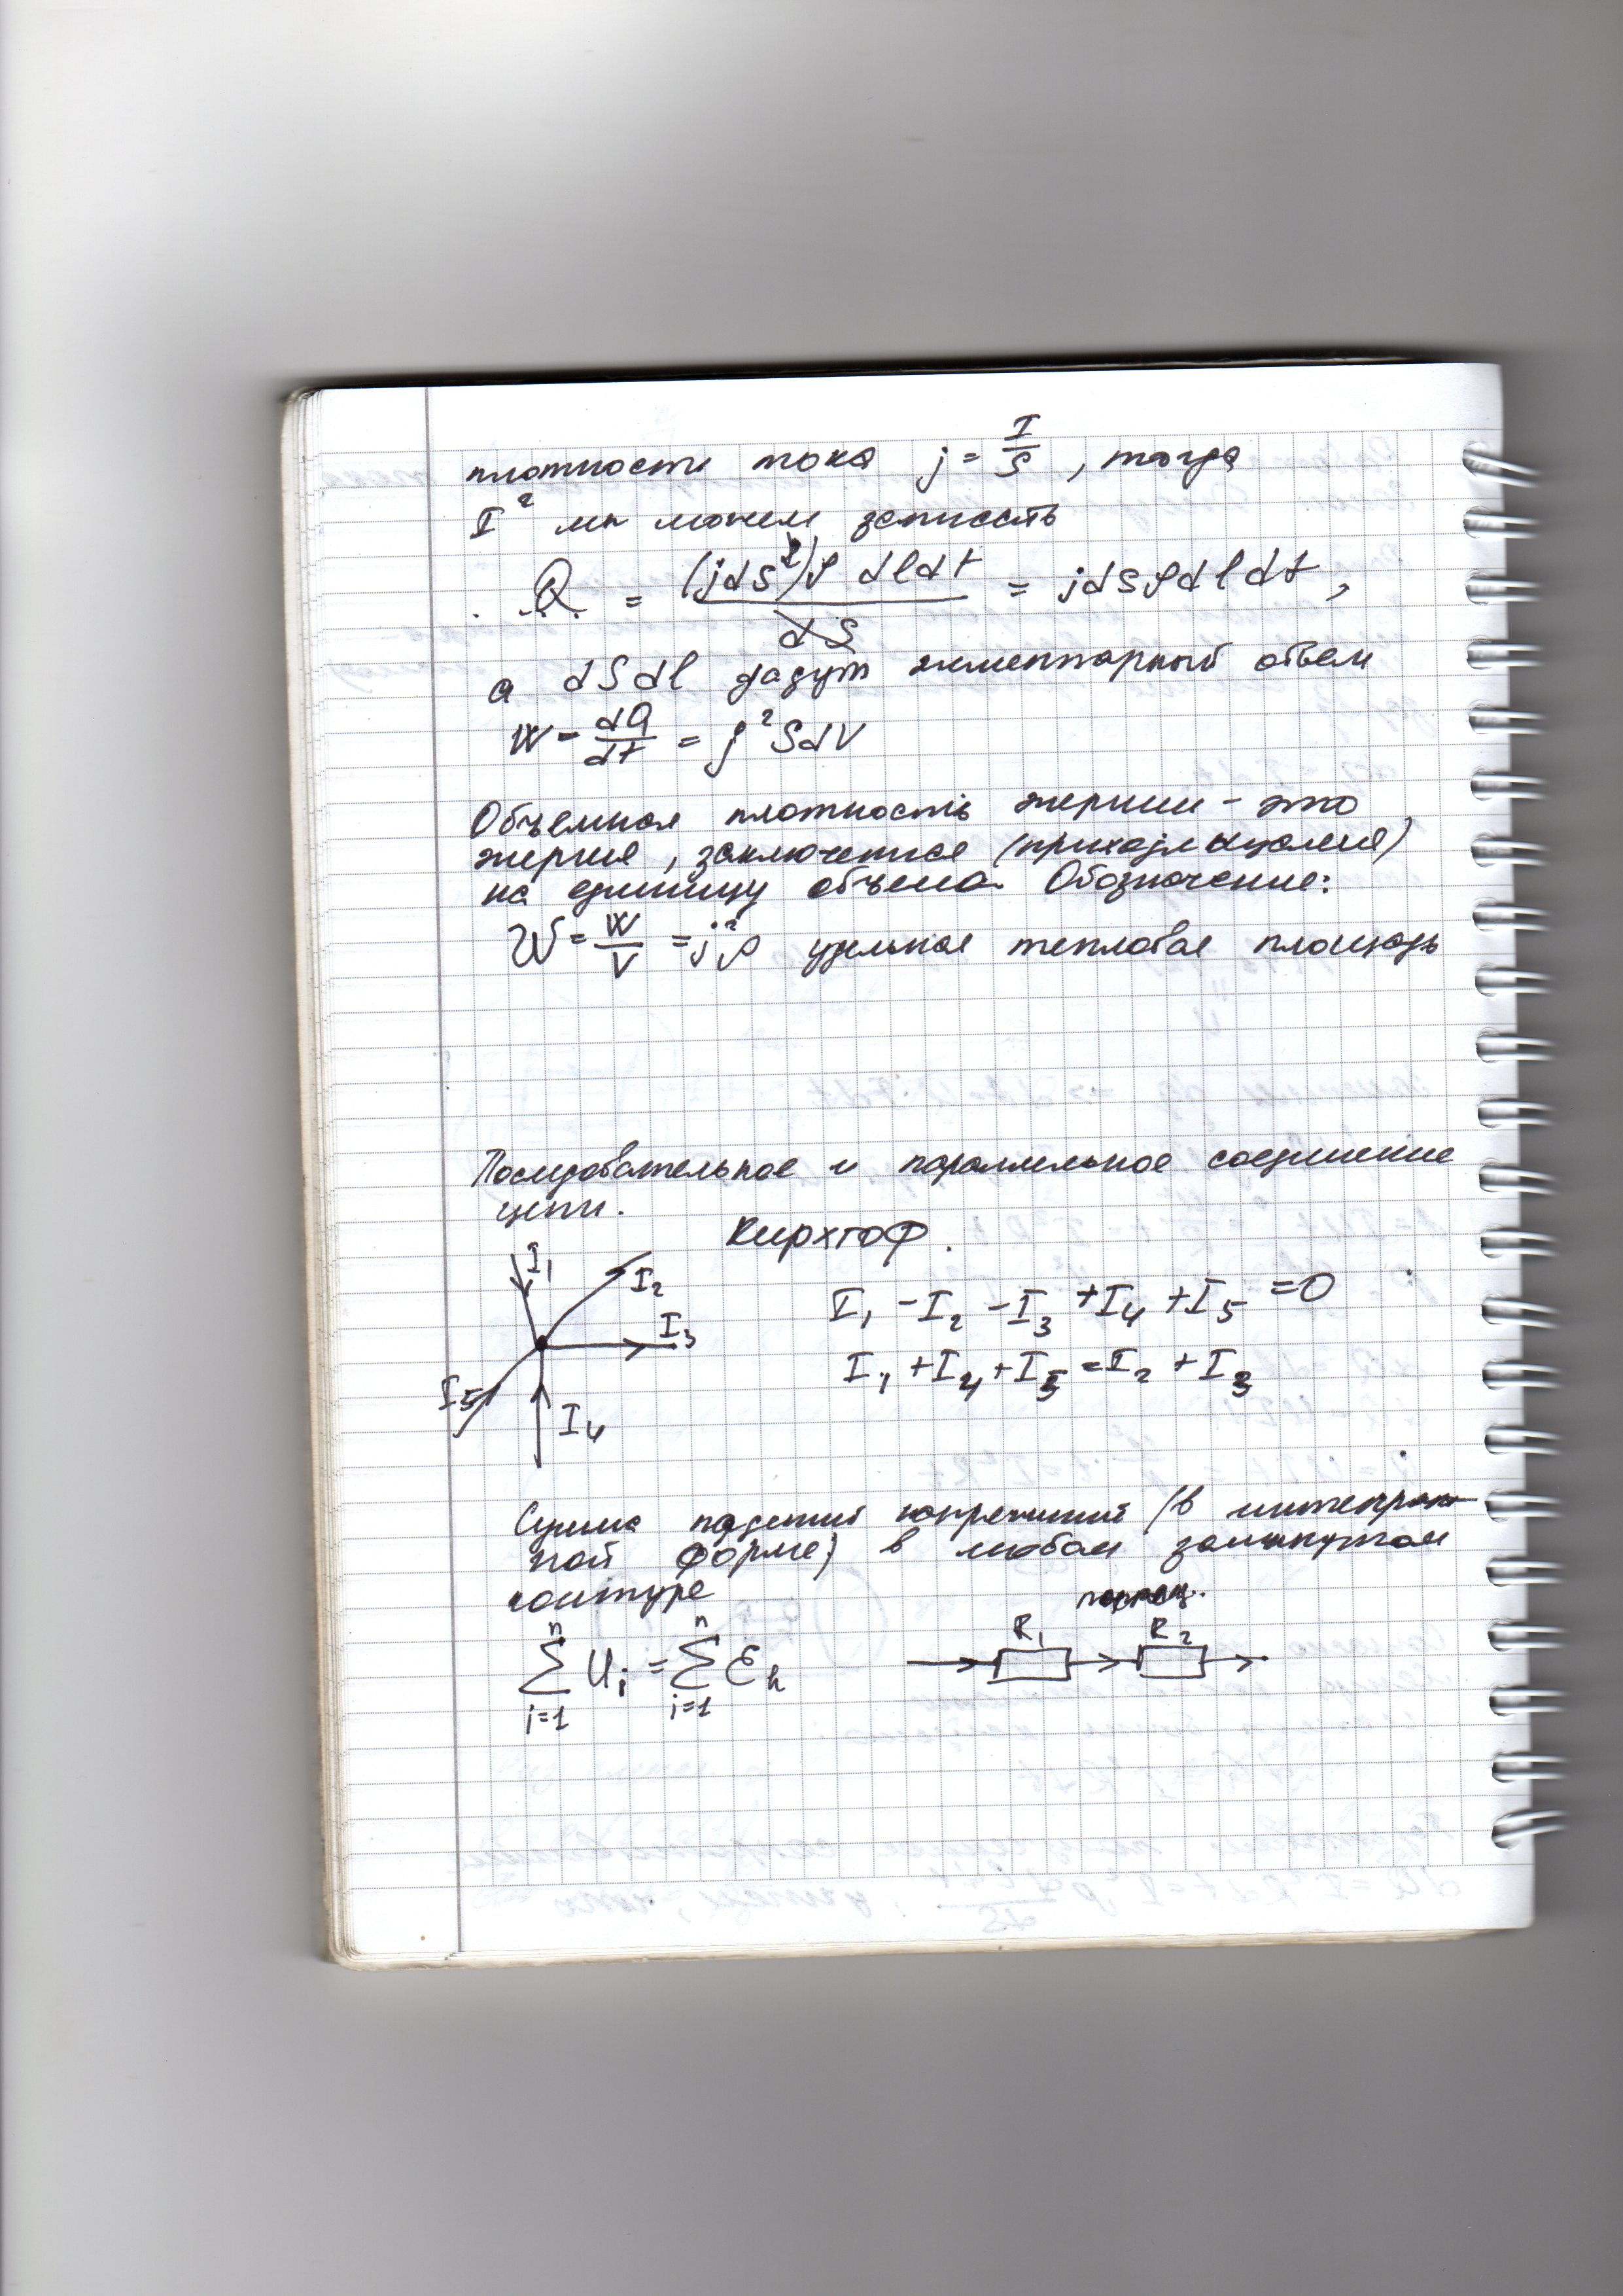 плотности тока j = I/S , тогда
I² мы можем записать
Q = (jdS²)ρ dl dt / dS = jdSρdl dt ,
а dSdl дадут элементарный объем
W = dQ/dt = j²SdV
Объемная плотность энергии - это
энергия, заключенная (приходящаяся)
на единицу объема. Обозначение:
W = W/V = j²ρ удельная тепловая площадь
Последовательное и параллельное соединение
цепи.
Кирхгоф.
I₁ I₂ I₃ I₅ I₄
I₁ - I₂ - I₃ + I₄ + I₅ = 0
I₁ + I₄ + I₅ = I₂ + I₃
Сумма падений напряжений (в интеграль
ной форме) в любом замкнутом
контуре
R₁ R₂
n ∑ i=1 Uᵢ = n ∑ i=1 Ɛₖ